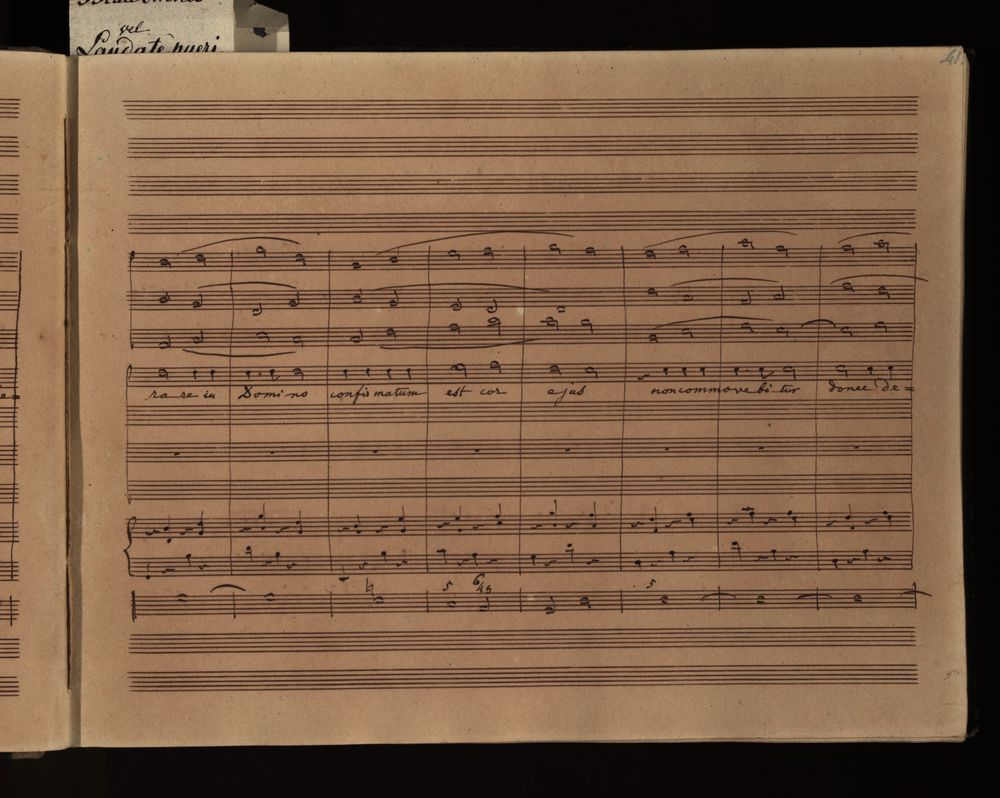 vel
Laudate pueri
41.
ra re in Domi no confirmatum est cor ejus non commove bi tur donec de=
5 6 5